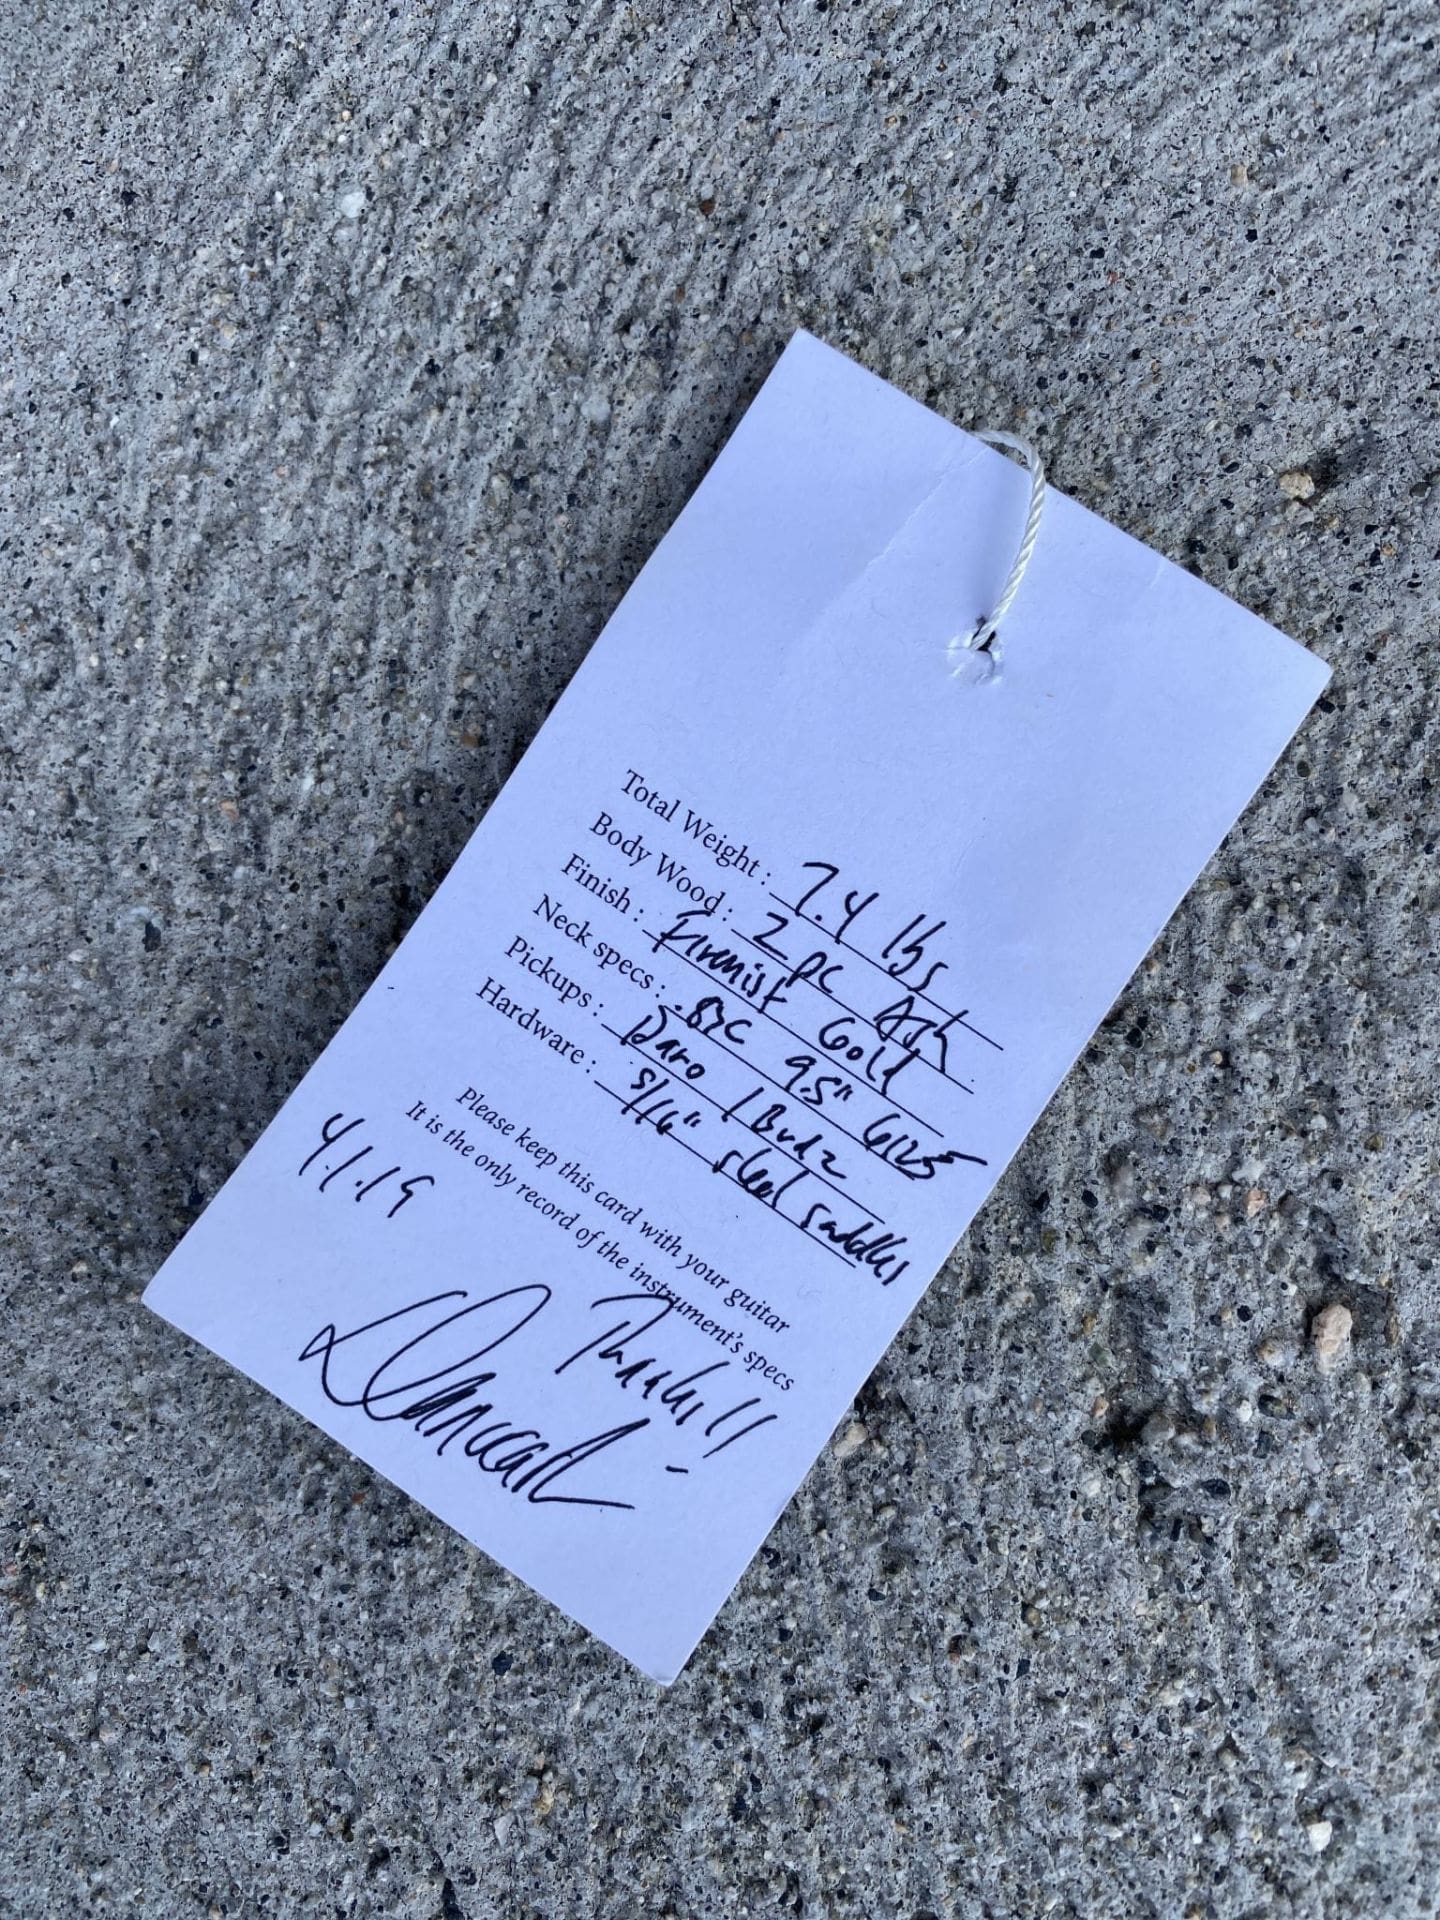 Total Weight : 7.4 lbs
Body Wood : 2 pc Ash
Finish : Firemist Gold
Neck specs : .83C 9.5" 6125
Pickups : /
Hardware : 5/16" steel saddles
Please keep this card with your guitar
It is the only record of the instrument's specs
4.1.19
Thanks!!